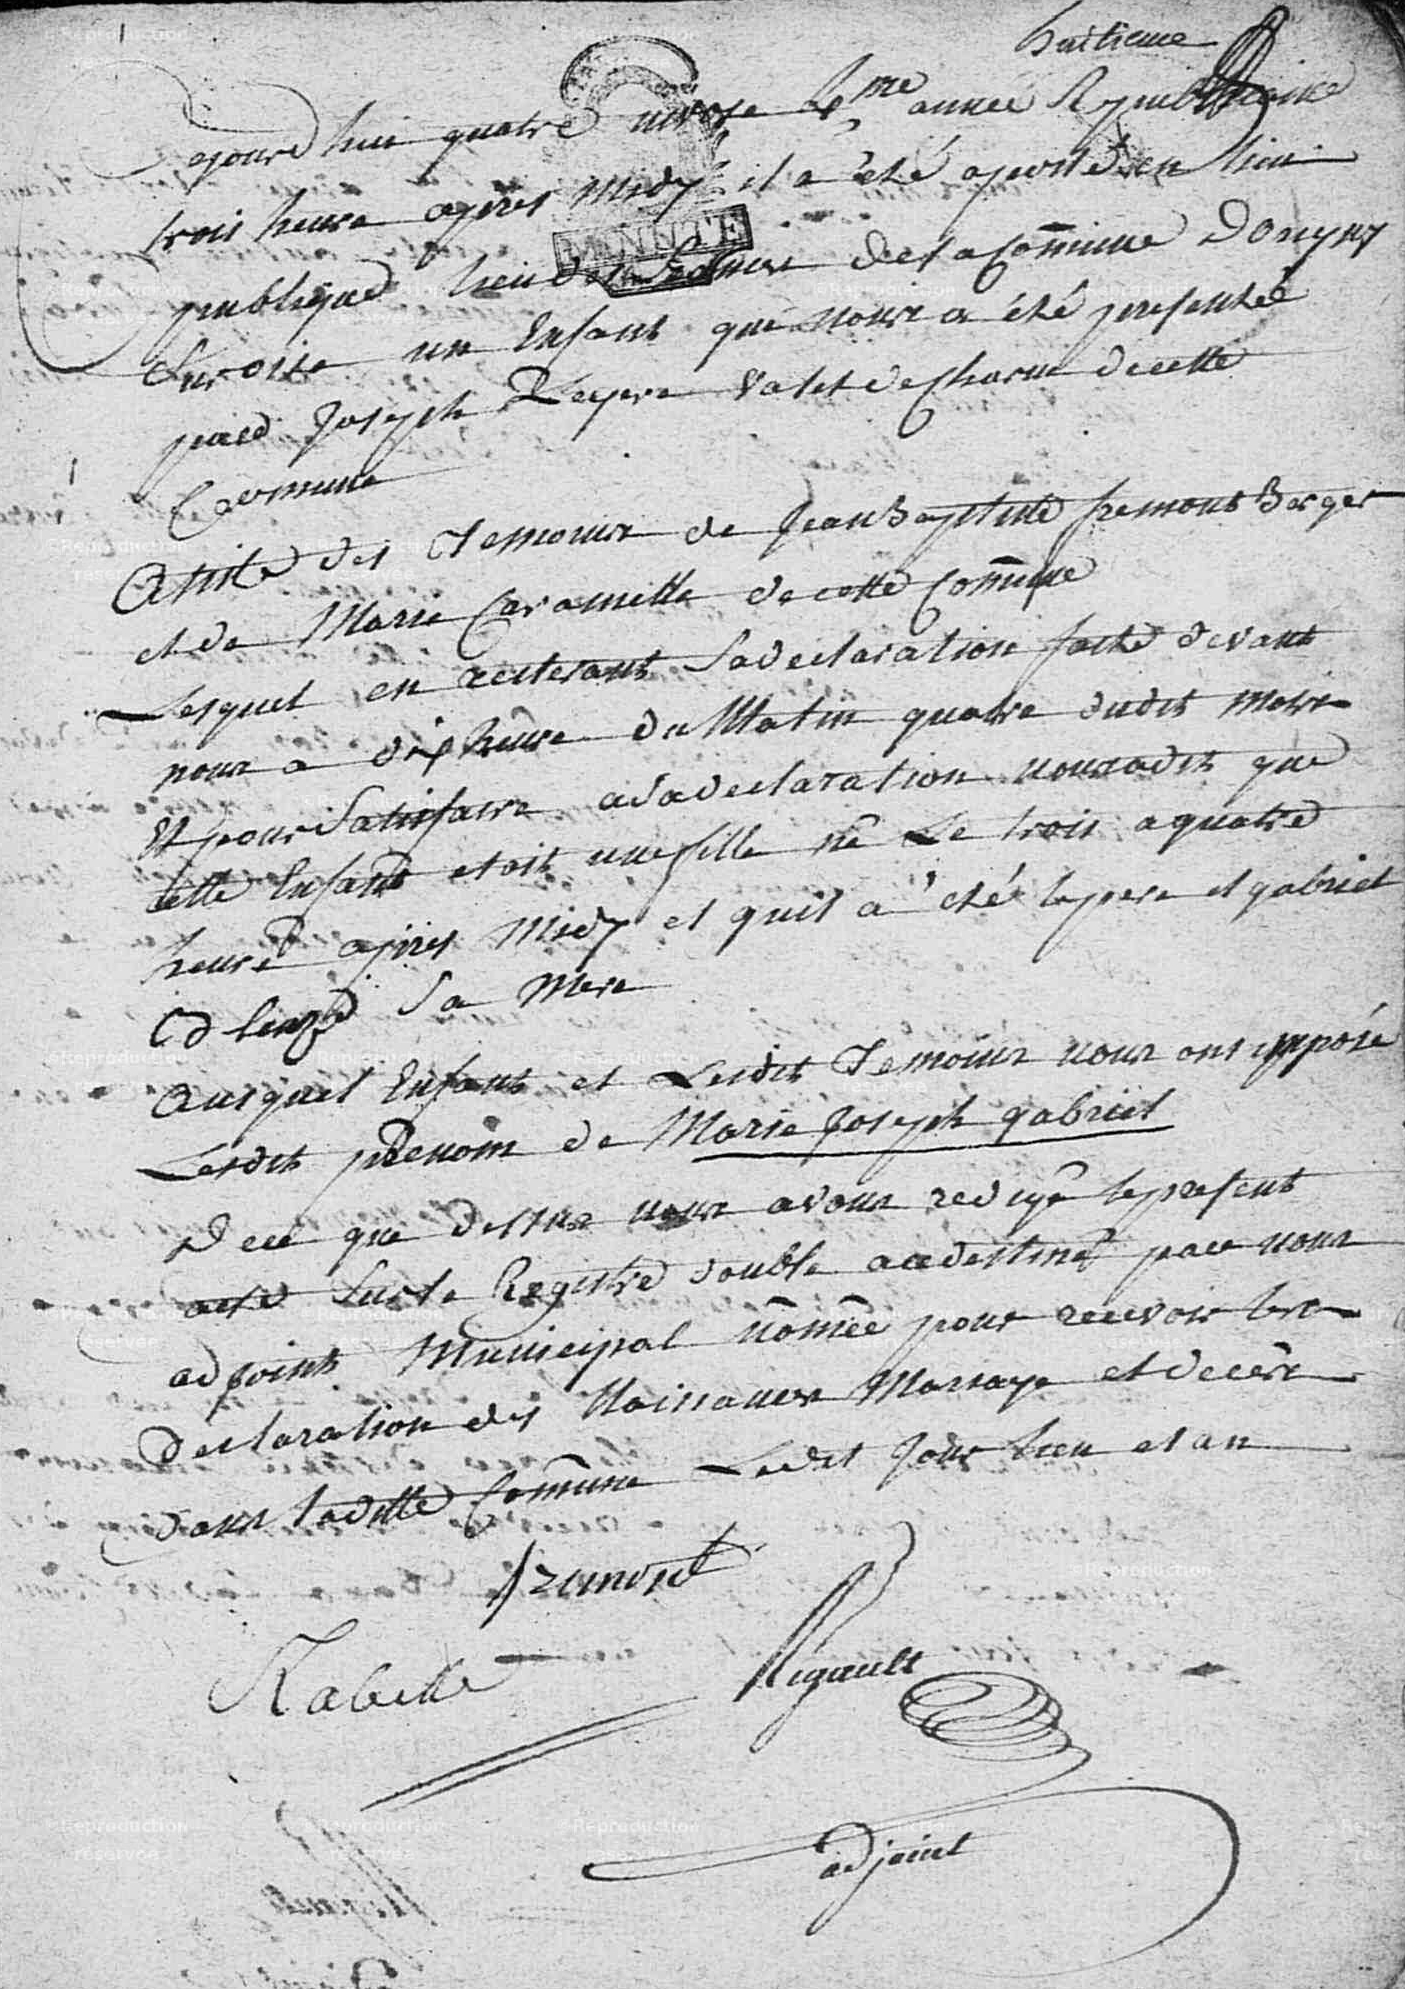 huitieme
ajourdhui quatre nivose 8me année Republicaine
trois heure apres Midy il a été aporté en lieu
publique lieu des Seances de la Comune Dongny
Sur oise un Enfant que nous a été presentée
par Joseph Lepere Valet de Charue de cette
Commune
Assité des Temoins de Jean Baptiste fremont Berger
et de Marie Caramitte de cette Comune
Lesquel en reiterant Sa declaration faite devant
nous a dix heure du Matin quatre dudit Mois
Et pour Satisfaire a sa declaration nous a dit que
cette Enfant etoit une fille né Le trois a quatre
heure apres Midy et quil a été le pere et gabriel
Sa Mere
Ausquel Enfant et Lesdit Temoins nous ont imposé
Lesdit prenom de Marie Joseph gabriel
De ce que dessus nous avons redigé le present
acte Sur le Registre double a ce destiné par nous
adjoint Municipal nomée pour recevoir les
Declaration des Naissances Mariage et deces
dans ladite Comune Ledit Jour lieu et an
fremont
Rabette
Rigault
adjoint
MINUTE